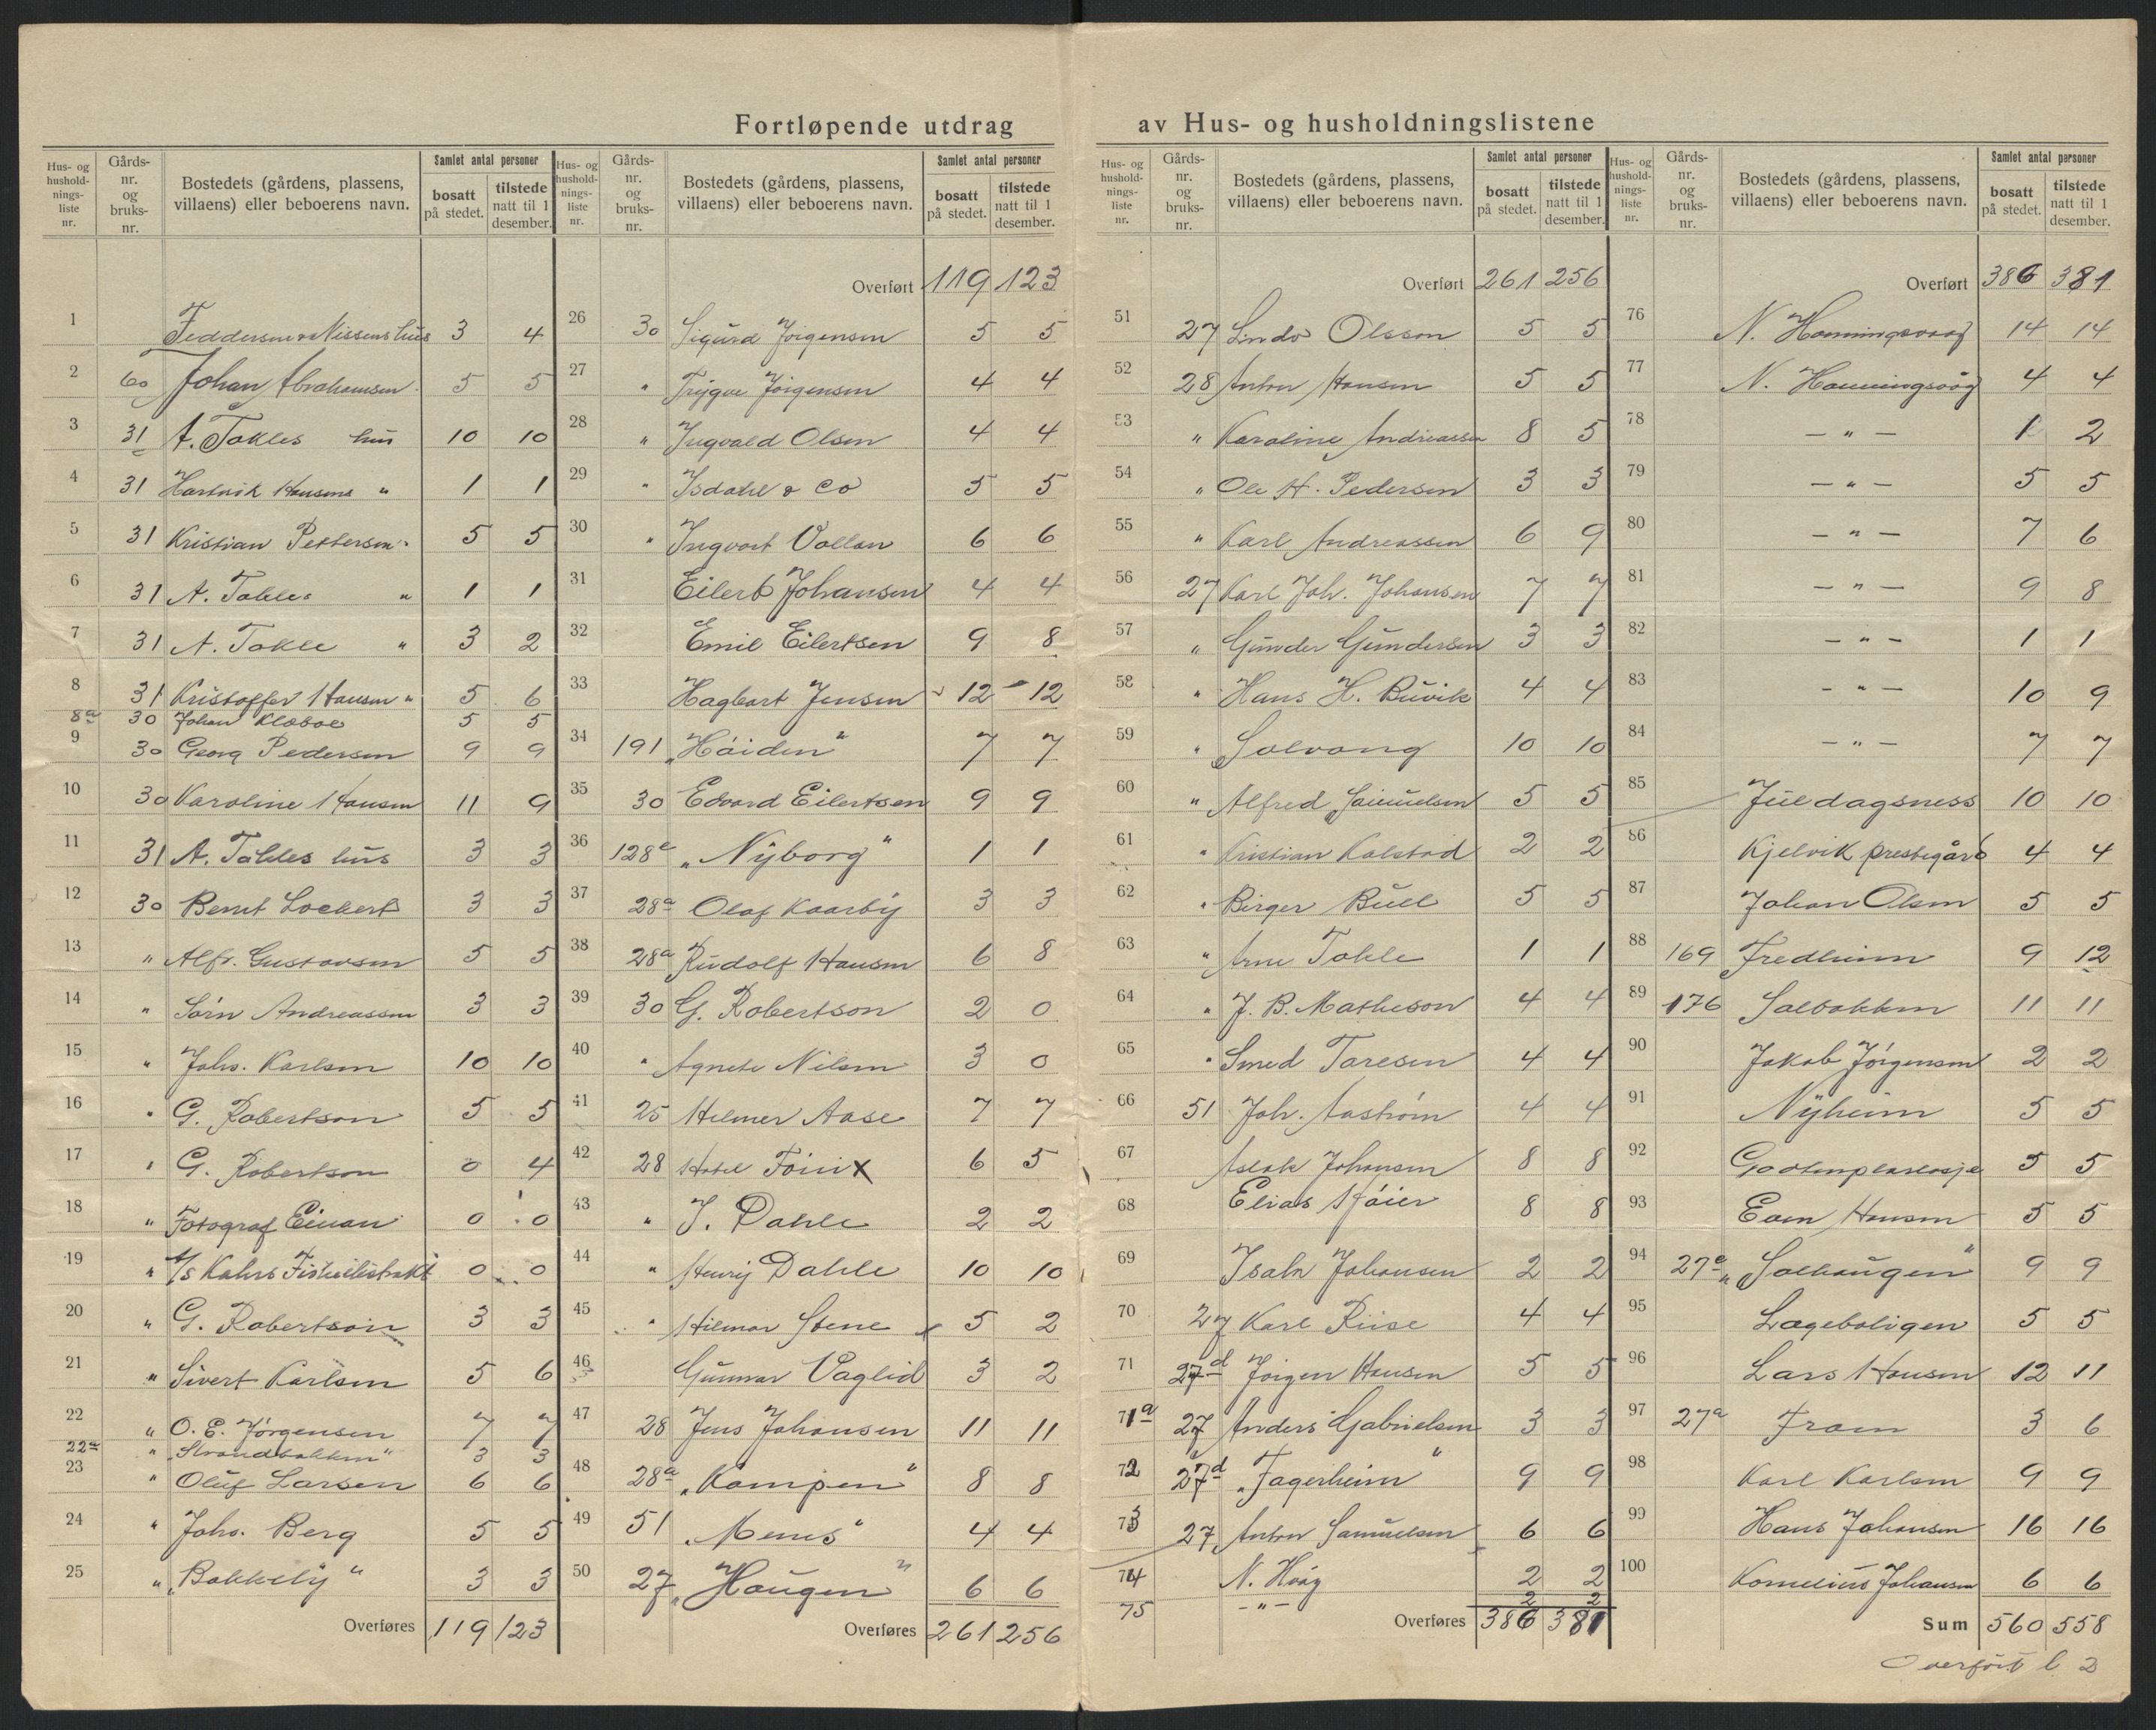 Fortløpende utdrag av Hus- og husholdningslistene
Hus- og husholdningsliste nr. | Gårds- nr. og bruks- nr. | Bostedets (gårdens, plassens, villaens) eller beboerens navn. | Samlet antal personer | bosatt på stedet. | tilstede natt til 1 desember.
1 Feddersen & Nissens hus 3 4
2 60 Johan Abrahamsen 5 5
3 31 A. Takles hus 10 10
4 31 Hartvik Hansens " 1 1
5 31 Kristian Pettersen " 5 5
6 31 A. Takles " 1 1
7 31 A. Takle " 3 2
8 31 Kristoffer Hansen " 5 6
8a 30 Johan Klæboe 5 5
9 30 Georg Pedersen 9 9
10 30 Karoline Hansen 11 9
11 31 A. Takles hus 3 3
12 30 Bernt Lockert 3 3
13 " Alfr. Gustavsen 5 5
14 " Sørn Andreassen 3 3
15 " Johs. Karlsen 10 10
16 " G. Robertson 5 5
17 " G. Robertson 0 4
18 " Fotograf 0 0
19 " A/S Kahrs 0 0
20 " G. Robertson 3 3
21 " Sivert Karlsen 5 6
22 " O. E. Jørgensen 7 7
22a " "Strandbakken" 3 3
23 " Oluf Larsen 6 6
24 " Johs. Berg 5 5
25 " "Bakkely" 3 3
Overføres 119 123
Overført 119 123
26 30 Sigurd Jörgensen 5 5
27 " Trygve Jörgensen 4 4
28 " Ingvald Olsen 4 4
29 " Isdahl & Co 5 5
30 " Ingvart Vollan 6 6
31 Eilert Johansen 4 4
32 Emil Eilertsen 9 8
33 Hagbart Jensen 12 12
34 191 "Höiden" 7 7
35 30 Edvard Eilertsen 9 9
36 128a "Nyborg" 1 1
37 28a Olaf Kaarby 3 3
38 28a Rudolf Hansen 6 8
39 30 G. Robertson 2 0
40 " Agnete Nilsen 3 0
41 25 Helmer Aase 7 7
42 28 Hotel Fönix 6 5
43 " J. Dahle 2 2
44 " Henry Dahle 10 10
45 " Hilmar Stene x 5 2
46 Gunnar Vaglid 3 2
47 28 Jens Johansen 11 11
48 28a "Kampen" 8 8
49 51 "Menes" 4 4
50 27 "Haugen" 6 6
Overføres 261 256
Hus- og husholdnings- liste nr. | Gårds- nr. og bruks- nr. | Bostedets (gårdens, plassens, villaens) eller beboerens navn. | Samlet antal personer | bosatt på stedet. | tilstede natt til 1 desember.
Overført 261 256
51 27 Lindo Olsson 5 5
52 28 Anton Hansen 5 5
53 " Karoline Andreassen 8 5
54 " Ole H. Pedersen 3 3
55 " Karl Andreassen 6 9
56 27 Karl Joh. Johansen 7 7
57 " Gunder Gundersen 3 3
58 " Hans H. Buvik 4 4
59 " Solvang 10 10
60 " Alfred Samuelsen 5 5
61 " Kristian Kalstad 2 2
62 " Birger Buel 5 5
63 " Arne Takle 1 1
64 " J. B. Matheson 4 4
65 " Smed Taresen 4 4
66 51 Joh. Aaström 4 4
67 Aslak Johansen 8 8
68 Elias 8 8
69 Isak Johansen 2 2
70 27 Karl Riise 4 4
71 27d Jörgen Hansen 5 5
71a 27 Anders Gabrielsen 3 3
72 27d "Fagerheim" 9 9
73 27 Anton Samuelsen 6 6
74 N. Hvåg 2 2
75 - " - 2 2
Overføres 386 381
Overført 386 381
76 N. Honningsvaag 14 14
77 N. Honningsvåg 4 4
78 - " - 1 2
79 - " - 5 5
80 - " - 7 6
81 - " - 9 8
82 - " - 1 1
83 - " - 10 9
84 - " - 7 7
85 Juldagsness 10 10
86 Kjelvik prestegård 4 4
87 Johan Olsen 5 5
88 169 Fredheim 9 12
89 176 Solbakken 11 11
90 Jakob Jörgensen 2 2
91 Nyheim 5 5
92 Godtemplarlosje 5 5
93 Even Hansen 5 5
94 27a "Solhaugen" 9 9
95 Lægeboligen 5 5
96 Lars Hansen 12 11
97 27a Fram 3 6
98 Karl Karlsen 9 9
99 Hans Johansen 16 16
100 Kornelius Johansen 6 6
Sum 560 558
Overført l. 2